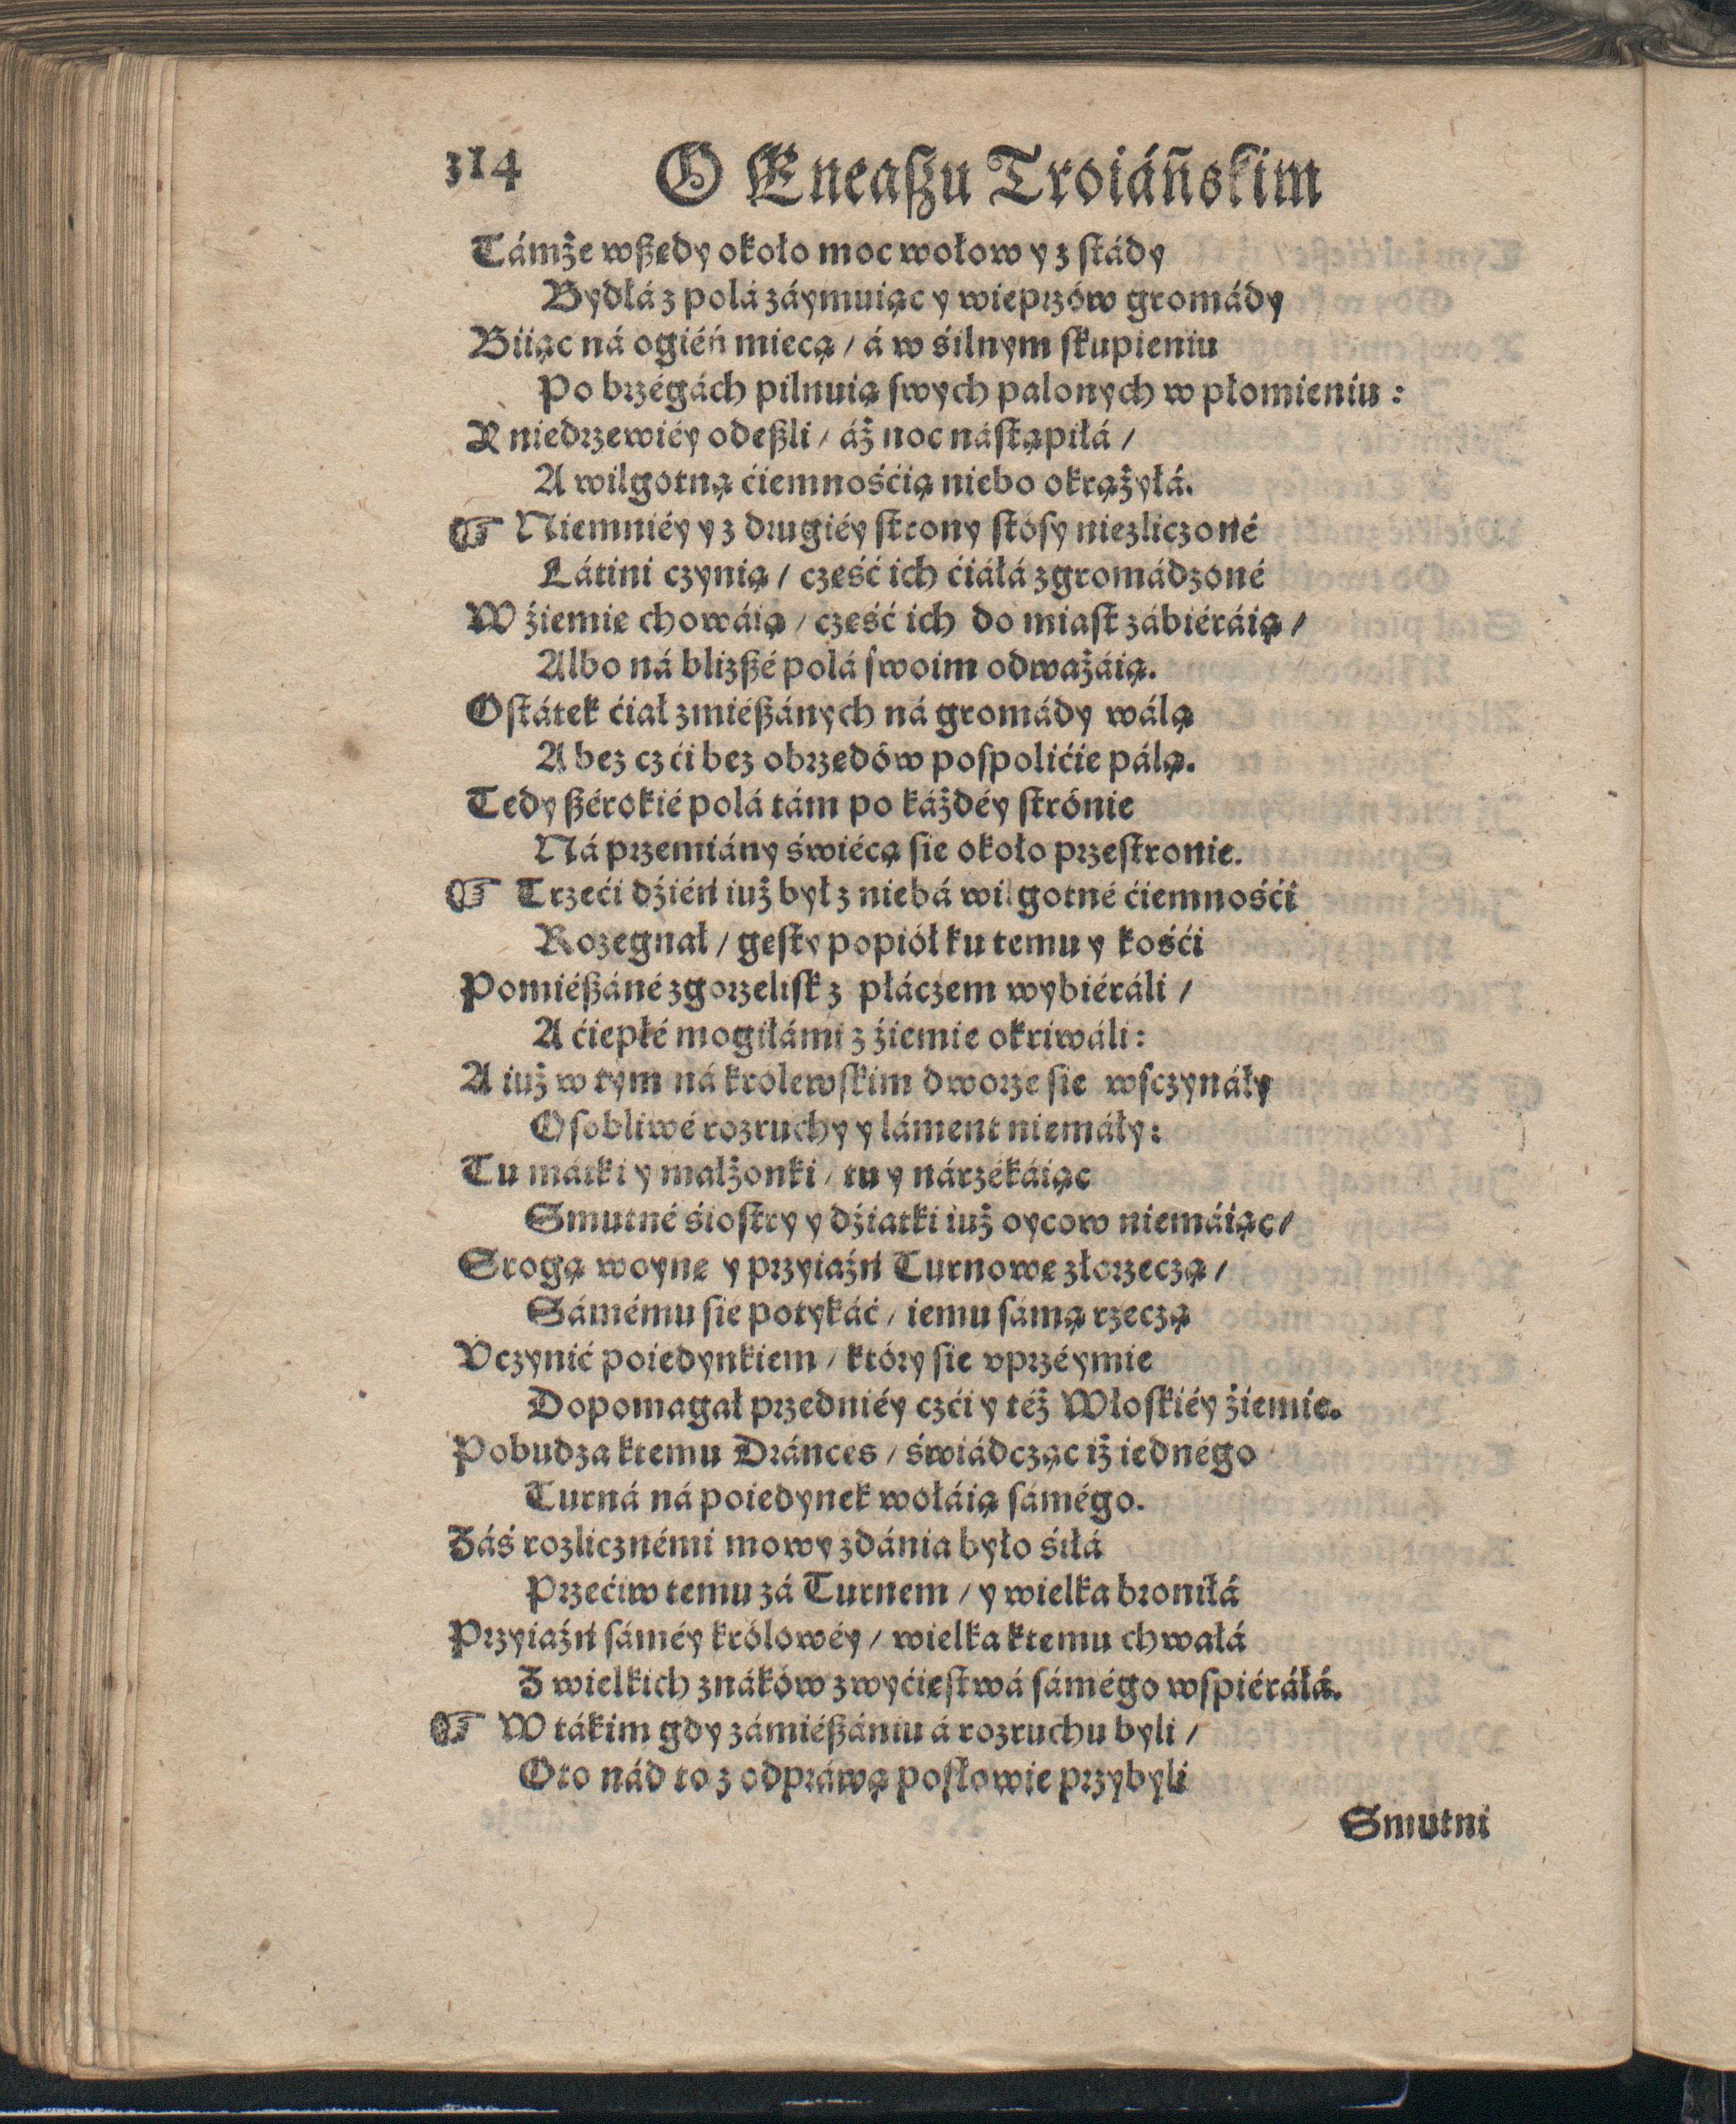 314 O Eneaszu Troiáńskim
Támże wszędy około moc wołow y z stády
Bydłá z polá záymuiąc y wieprzów gromády
Biiąc ná ogiéń miecą / á w śilnym skupieniu
Po brzégách pilnuią swych palonych w płomieniu :
Y niedrzewiéy odeszli / áż noc nástąpiłá /
A wilgotną ćiemnośćią niebo okrążyłá.
☞ Niemniéy y z drugiéy strony stósy niezliczoné
Látini czynią / cześć ich ćiáłá zgromádzoné
W źiemie chowáią / cześć ich do miast zábiéráią /
Albo ná blizszé polá swoim odważáią.
Ostátek ćiał zmiészánych ná gromády wálą
A bez czći bez obrzędów pospolićie pálą.
Tedy szérokié polá tám po káżdéy strónie
Ná przemiány świécą sie około przestronie.
☞ Trzeći dźiéń iuż był z niebá wilgotné ćiemnośći
Rozegnał / gęsty popiół ku temu y kośći
Pomiészáné zgorzelisk z płáczem wybiéráli /
A ćiepłé mogiłámi z źiemie okriwáli :
A iuż w tym ná królewskim dworze sie wsczynáły
Osobliwé rozruchy y láment niemáły :
Tu mátki y małżonki / tu y nárzékáiąc
Smutné śiostry y dźiatki iuż oycow niemáiąc /
Srogą woynę y przyiaźń Turnowę złorzeczą /
Sámému sie potykáć / iemu sámą rzeczą
Vczynić poiedynkiem / który sie vprzéymie
Dopomagał przedniéy czći y téż Włoskiéy źiemie.
Pobudza ktemu Dránces / świádcząc iż iednégo
Turná ná poiedynek wołáią sámégo.
Záś rozlicznémi mowy zdánia było śiłá
Przećiw temu zá Turnem / y wielka broniłá
Przyiaźń sáméy królowéy / wielka ktemu chwałá
Z wielkich znáków zwyćięstwá sámégo wspiéráłá.
☞ W tákim gdy zámiészániu á rozruchu byli /
Oto nád to z odpráwą posłowie przybyli
Smutni